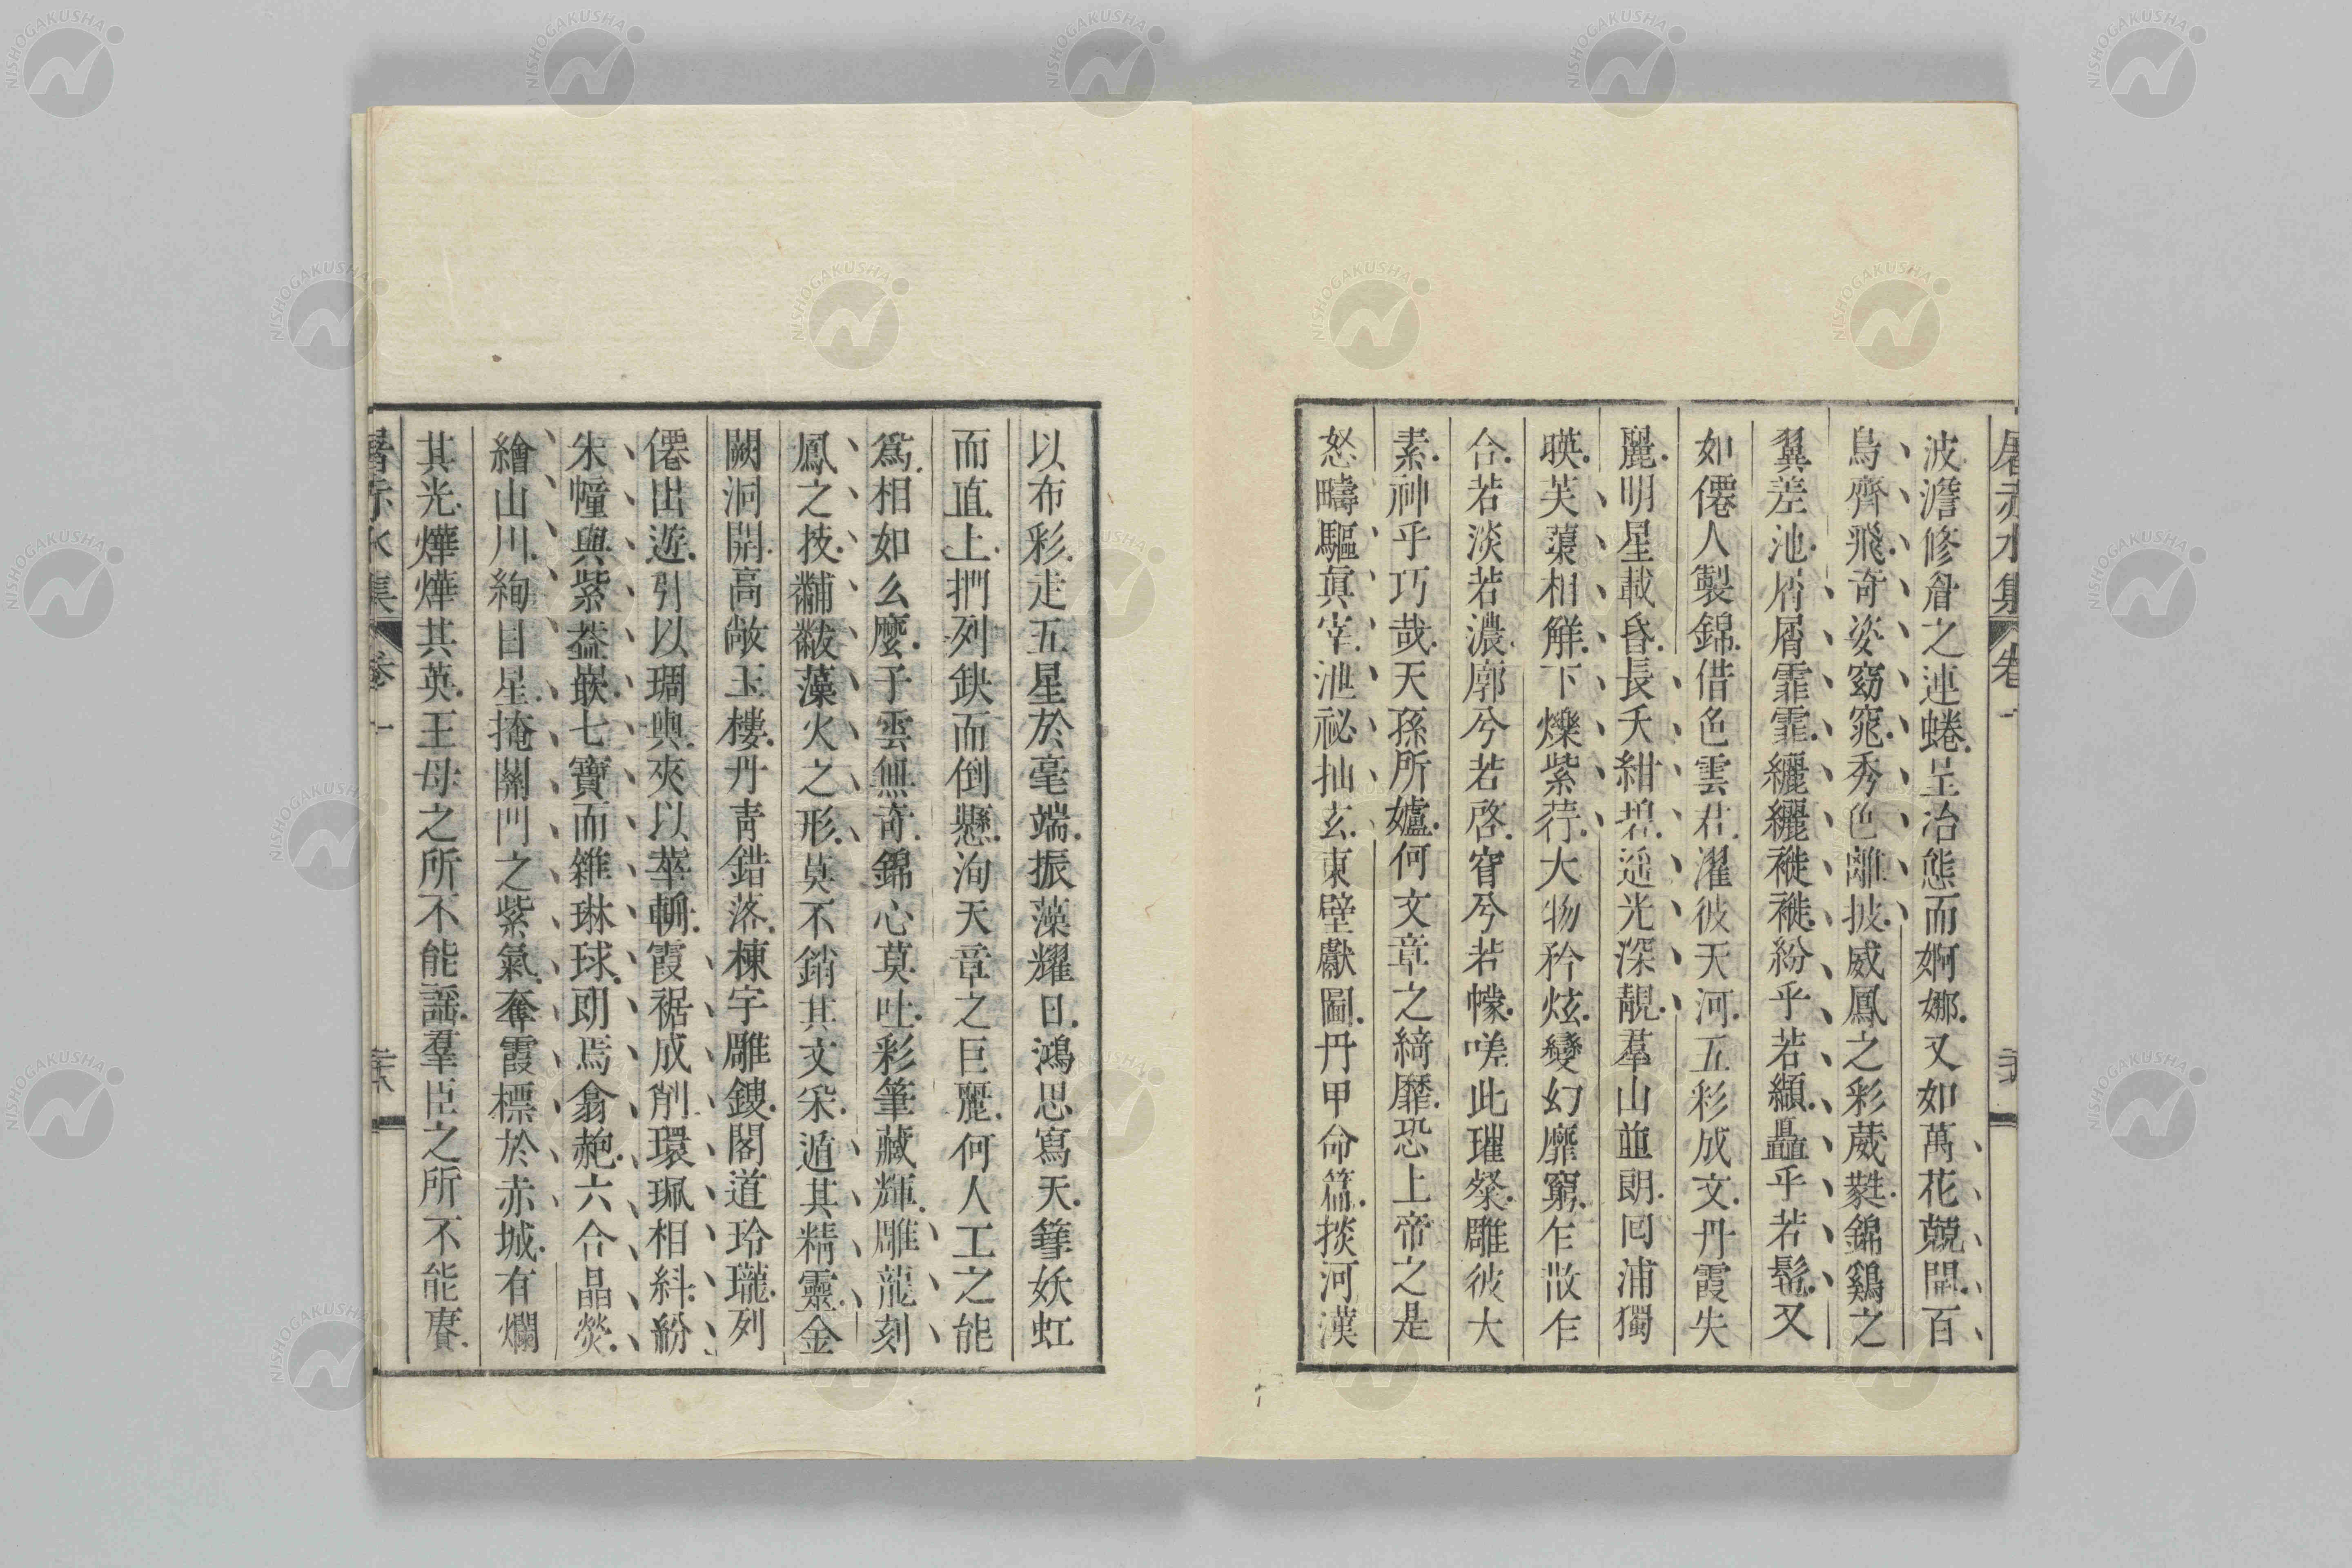 波澹修眷之連蜷呈冶態而婀娜又如萬花競開百
鳥齊飛奇姿窈窕秀色離披威鳳之彩葳蕤錦鷄之
翼差池屑屑霏霏纚纚褷褷紛乎若纈矗乎若髢又
如僊人製錦借色雲君濯彼天河五彩成文丹霞失
麗明星載昏長天紺碧遥光深靚羣山並朗囘浦獨
暎芙蕖相鮮下爍紫荇大物矜炫變幻靡窮乍散乍
合若淡若濃廓兮若啓窅兮若幪嗟此璀粲雕彼大
素神乎巧哉天孫所妒何文章之綺靡恐上帝之是
怒疇驅眞宰泄祕抽玄東壁獻圖丹甲命篇掞河漢
以布彩走五星於毫端振藻耀日鴻思寫天篲妖虹
而直上捫列缺而倒懸洵天章之巨麗何人工之能
爲相如么麼子雲無奇錦心莫吐彩筆藏輝雕龍刻
鳳之技黼黻藻火之形莫不銷其文采遁其精靈金
闕洞開高敞玉樓丹靑錯落棟宇雕鎪閣道玲瓏列
僊出遊引以琱輿夾以華輈霞裾成削環珮相糾紛
朱幢與紫葢嵌七寶而雜琳球朗焉翕赩六合晶熒
繪山川絢日星掩關門之紫氣奪霞標於赤城有爛
其光燁燁其英王母之所不能謡羣臣之所不能賡
屠赤水集 卷一